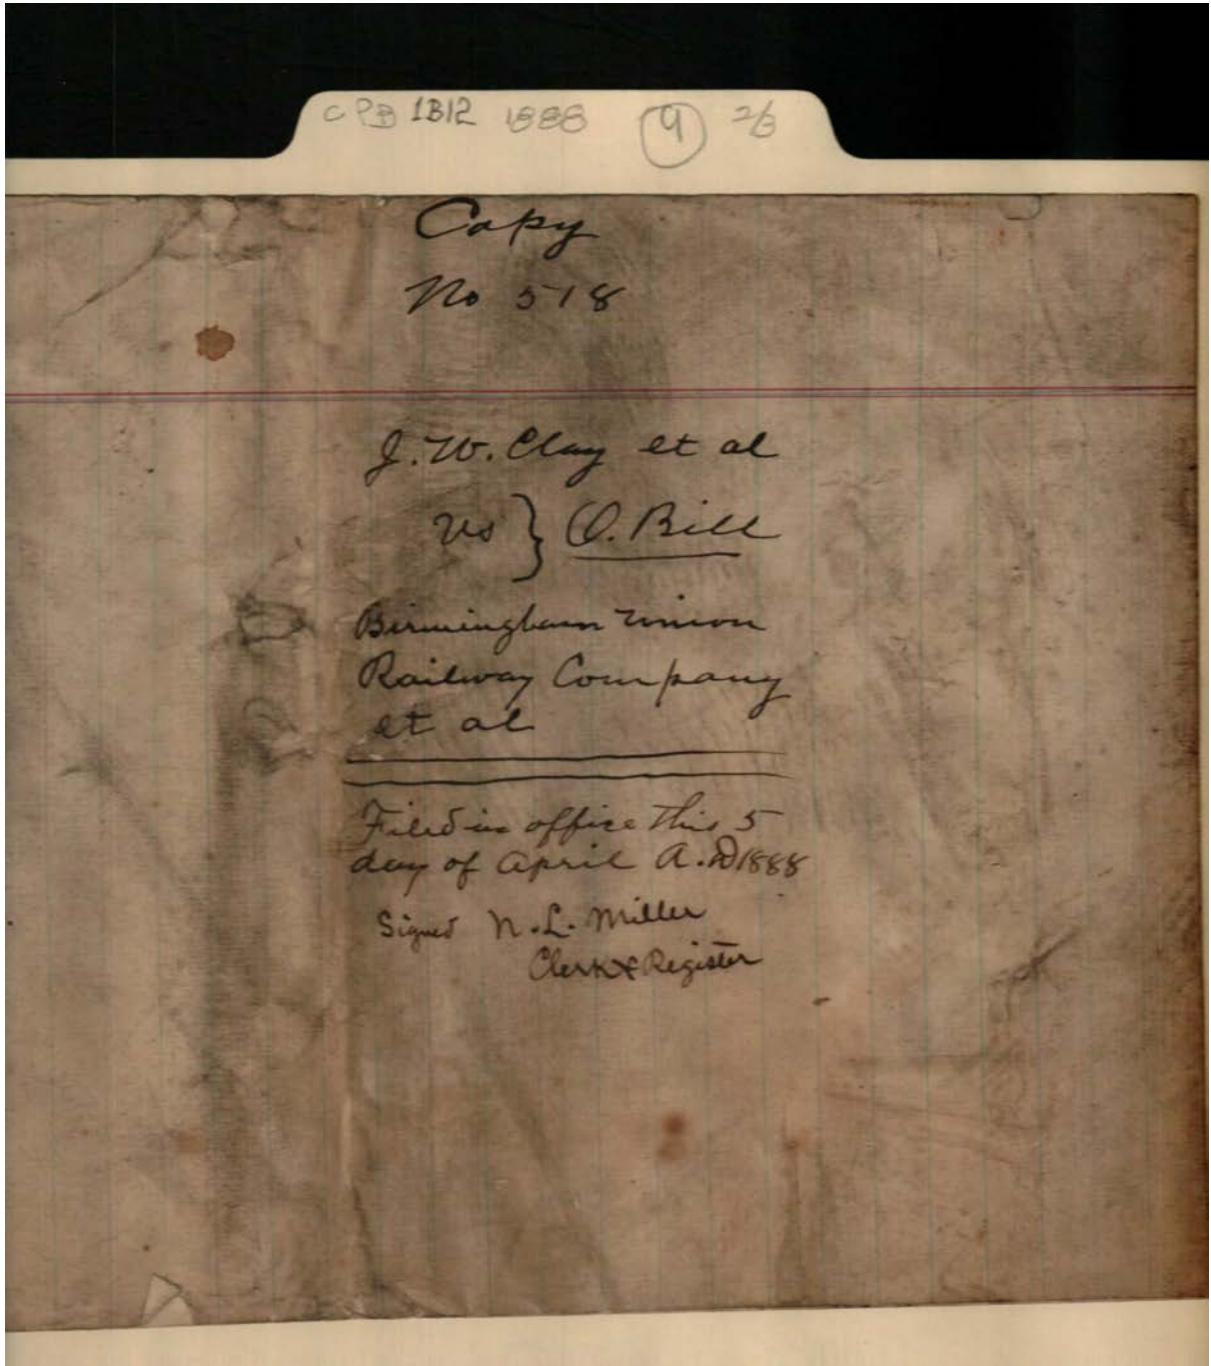 CPB 1B12 1888 9 2/3
Copy
No 518
J. W. Clay et al
vs } O. Bill
Birmingham Union
Railway Company
et al
Filed in office this 5
day of April A.D 1888
Signed N. L. Miller
Clerk & Register